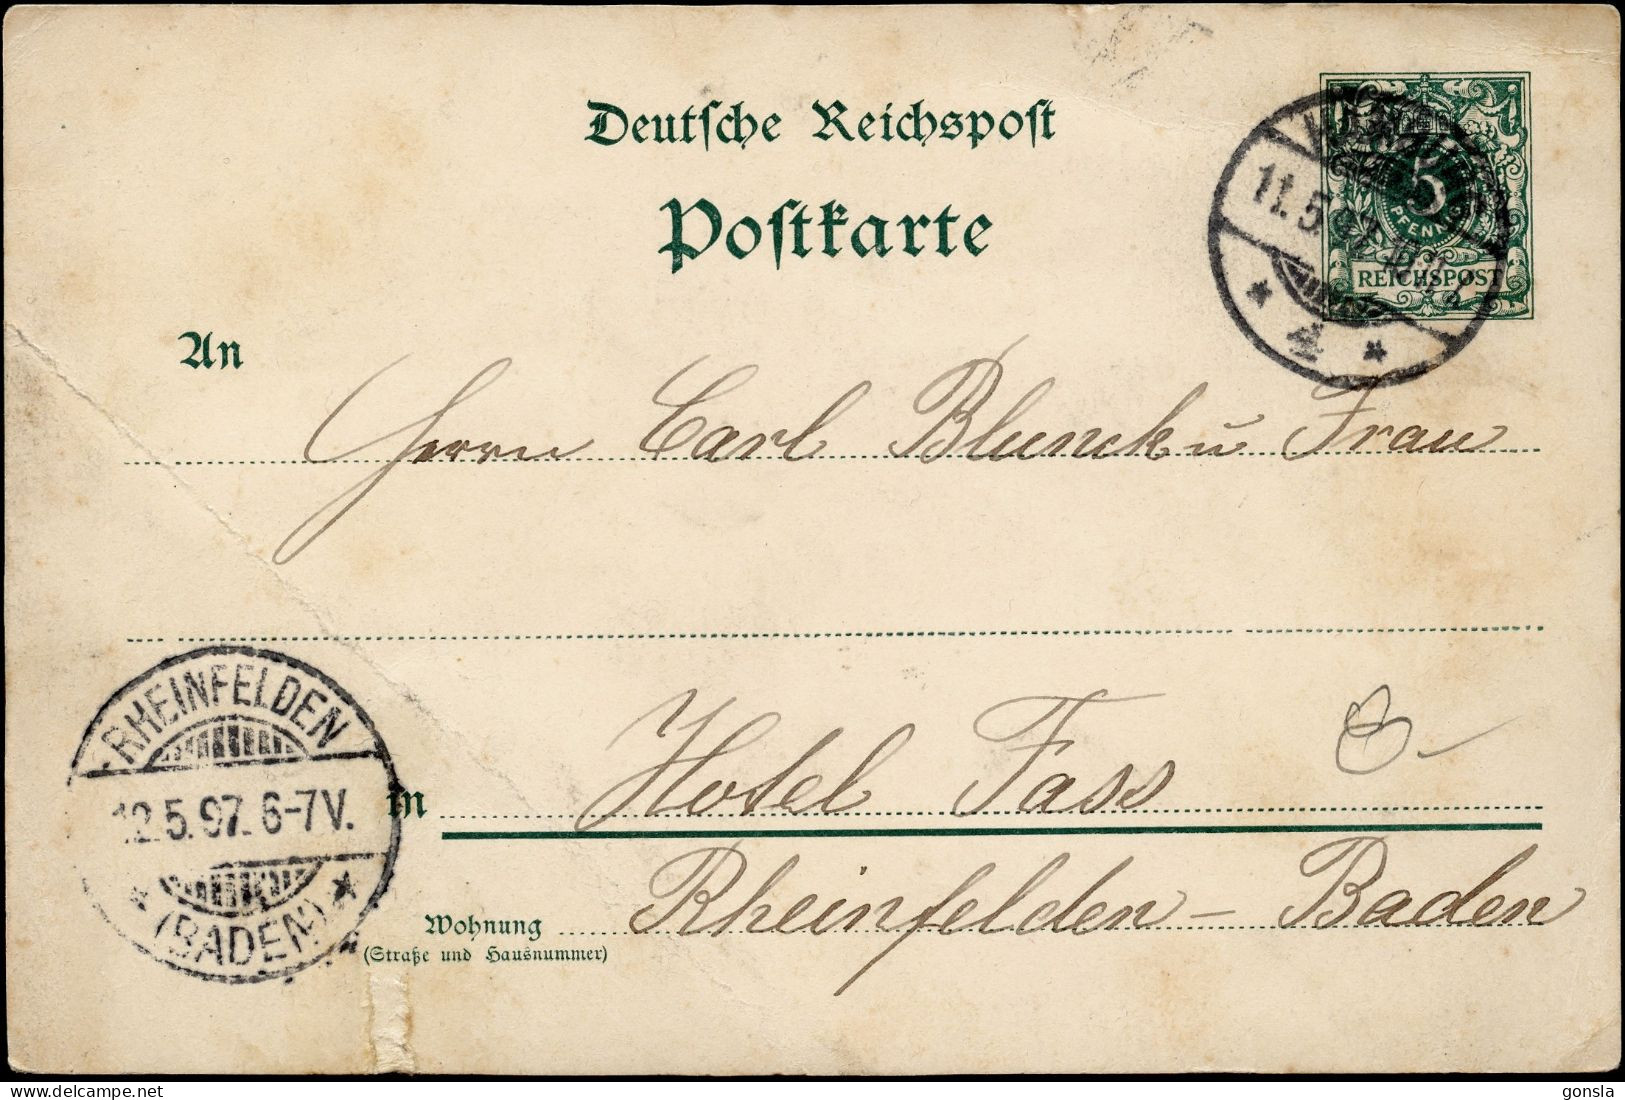 Deutsche Reichspost
Postkarte
11.5.97
4
5
PFENNIG
REICHSPOST
An
Herrn Carl Blunck u Frau
RHEINFELDEN
12.5.97. 6-7V.
(BADEN)
in Hotel Fass
Wohnung Rheinfelden - Baden
(Straße und Hausnummer)
gonsla